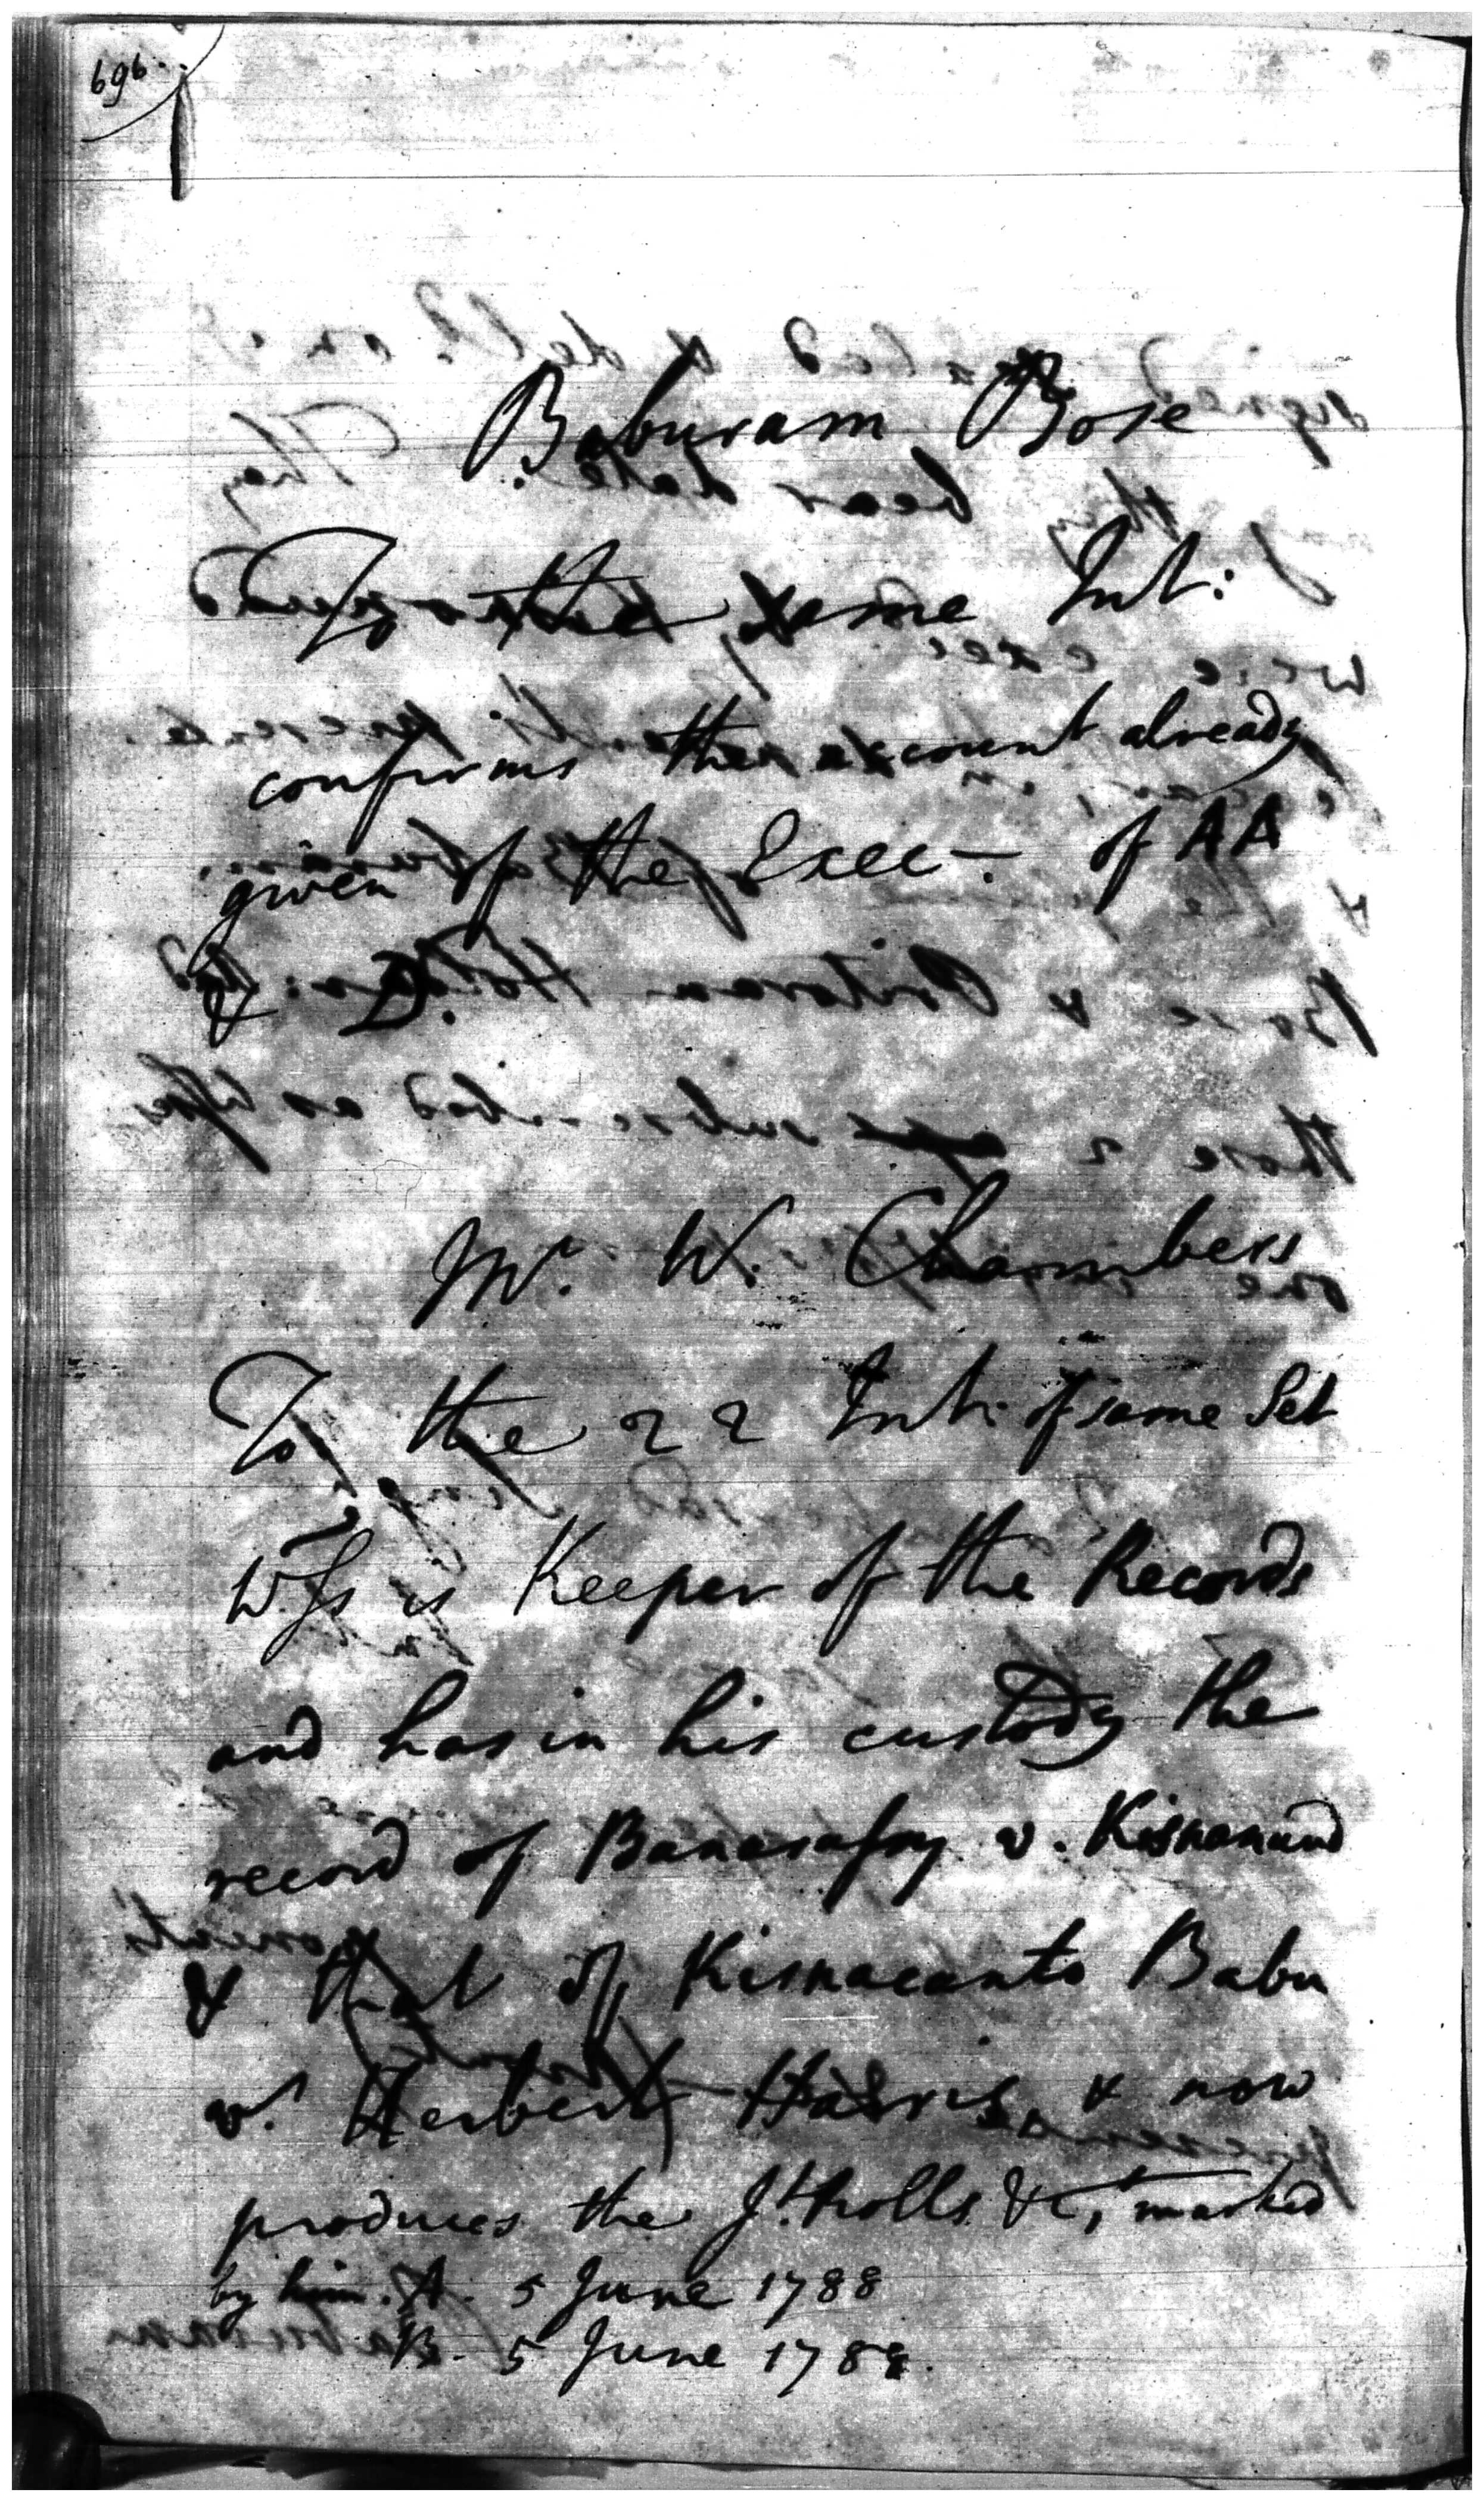 696.
Baburam Bose
To the same Int:
confirms the account already
given of the Exec–. of AA
& D.
Mr. W. Chambers
To the 22 Int: of same Set
Wss is Keeper of the Records
and has in his custody the
record of v. Kisnanund
& that of Kisnacanto Babu
v. Herbert Harris, & now
produces the Jt. rolls &c, marked
by him. A. 5 June 1788
B. 5 June 1788.